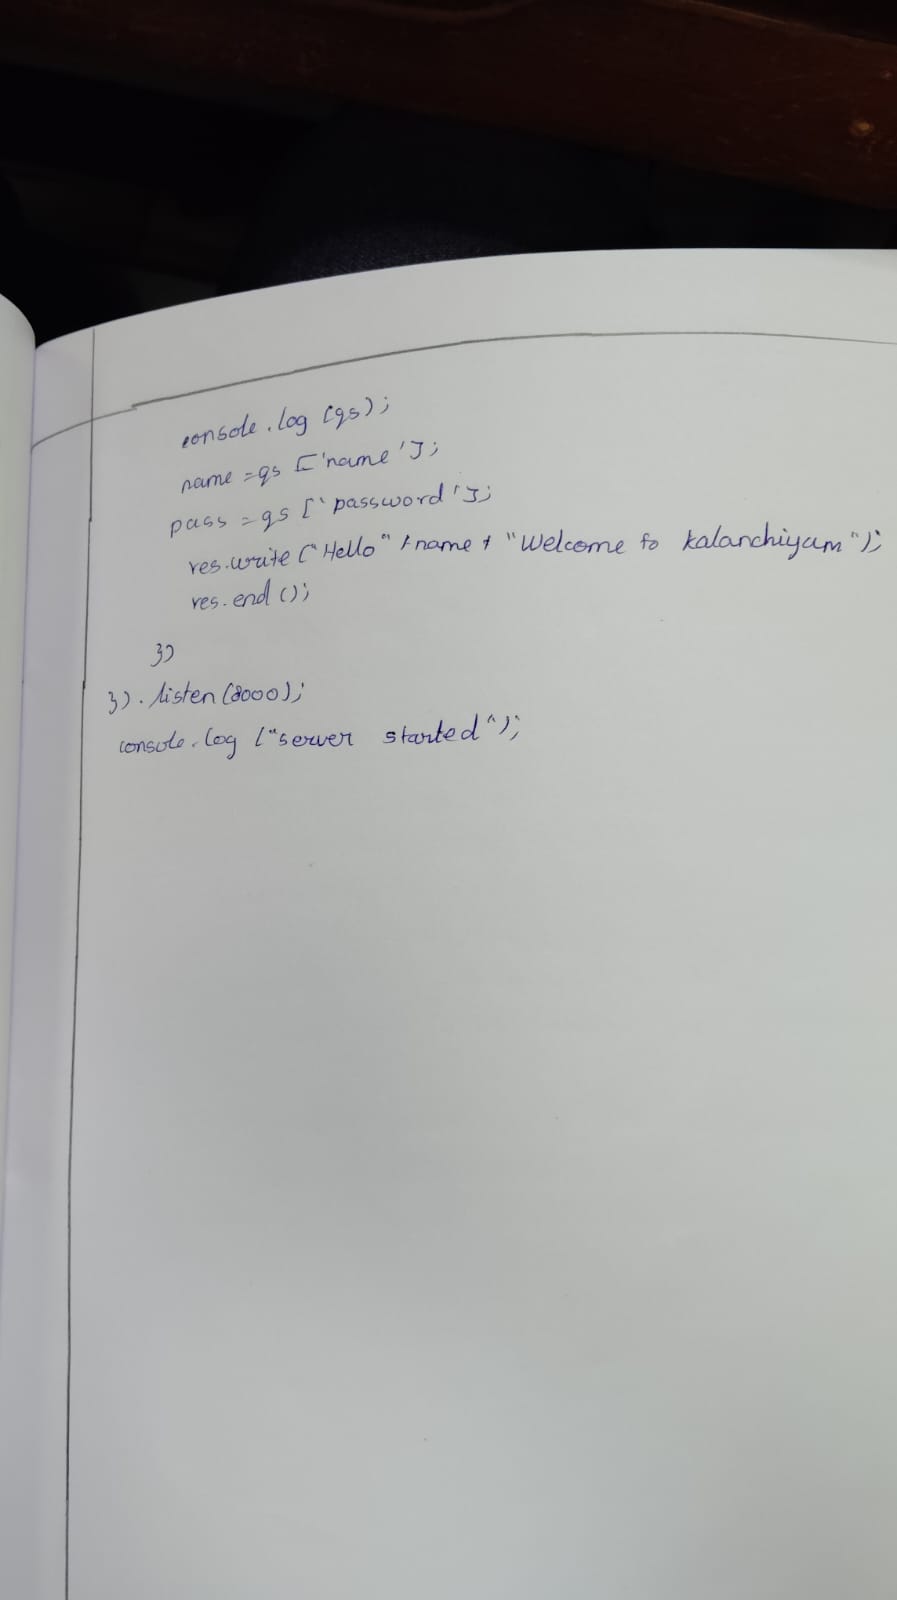 console.log (qs);
name = qs ['name'];
pass = qs ['password'];
res.write ("Hello" + name + "Welcome to kalanchiyam");
res.end ();
})
}).listen(8000);
console.log ("server started");